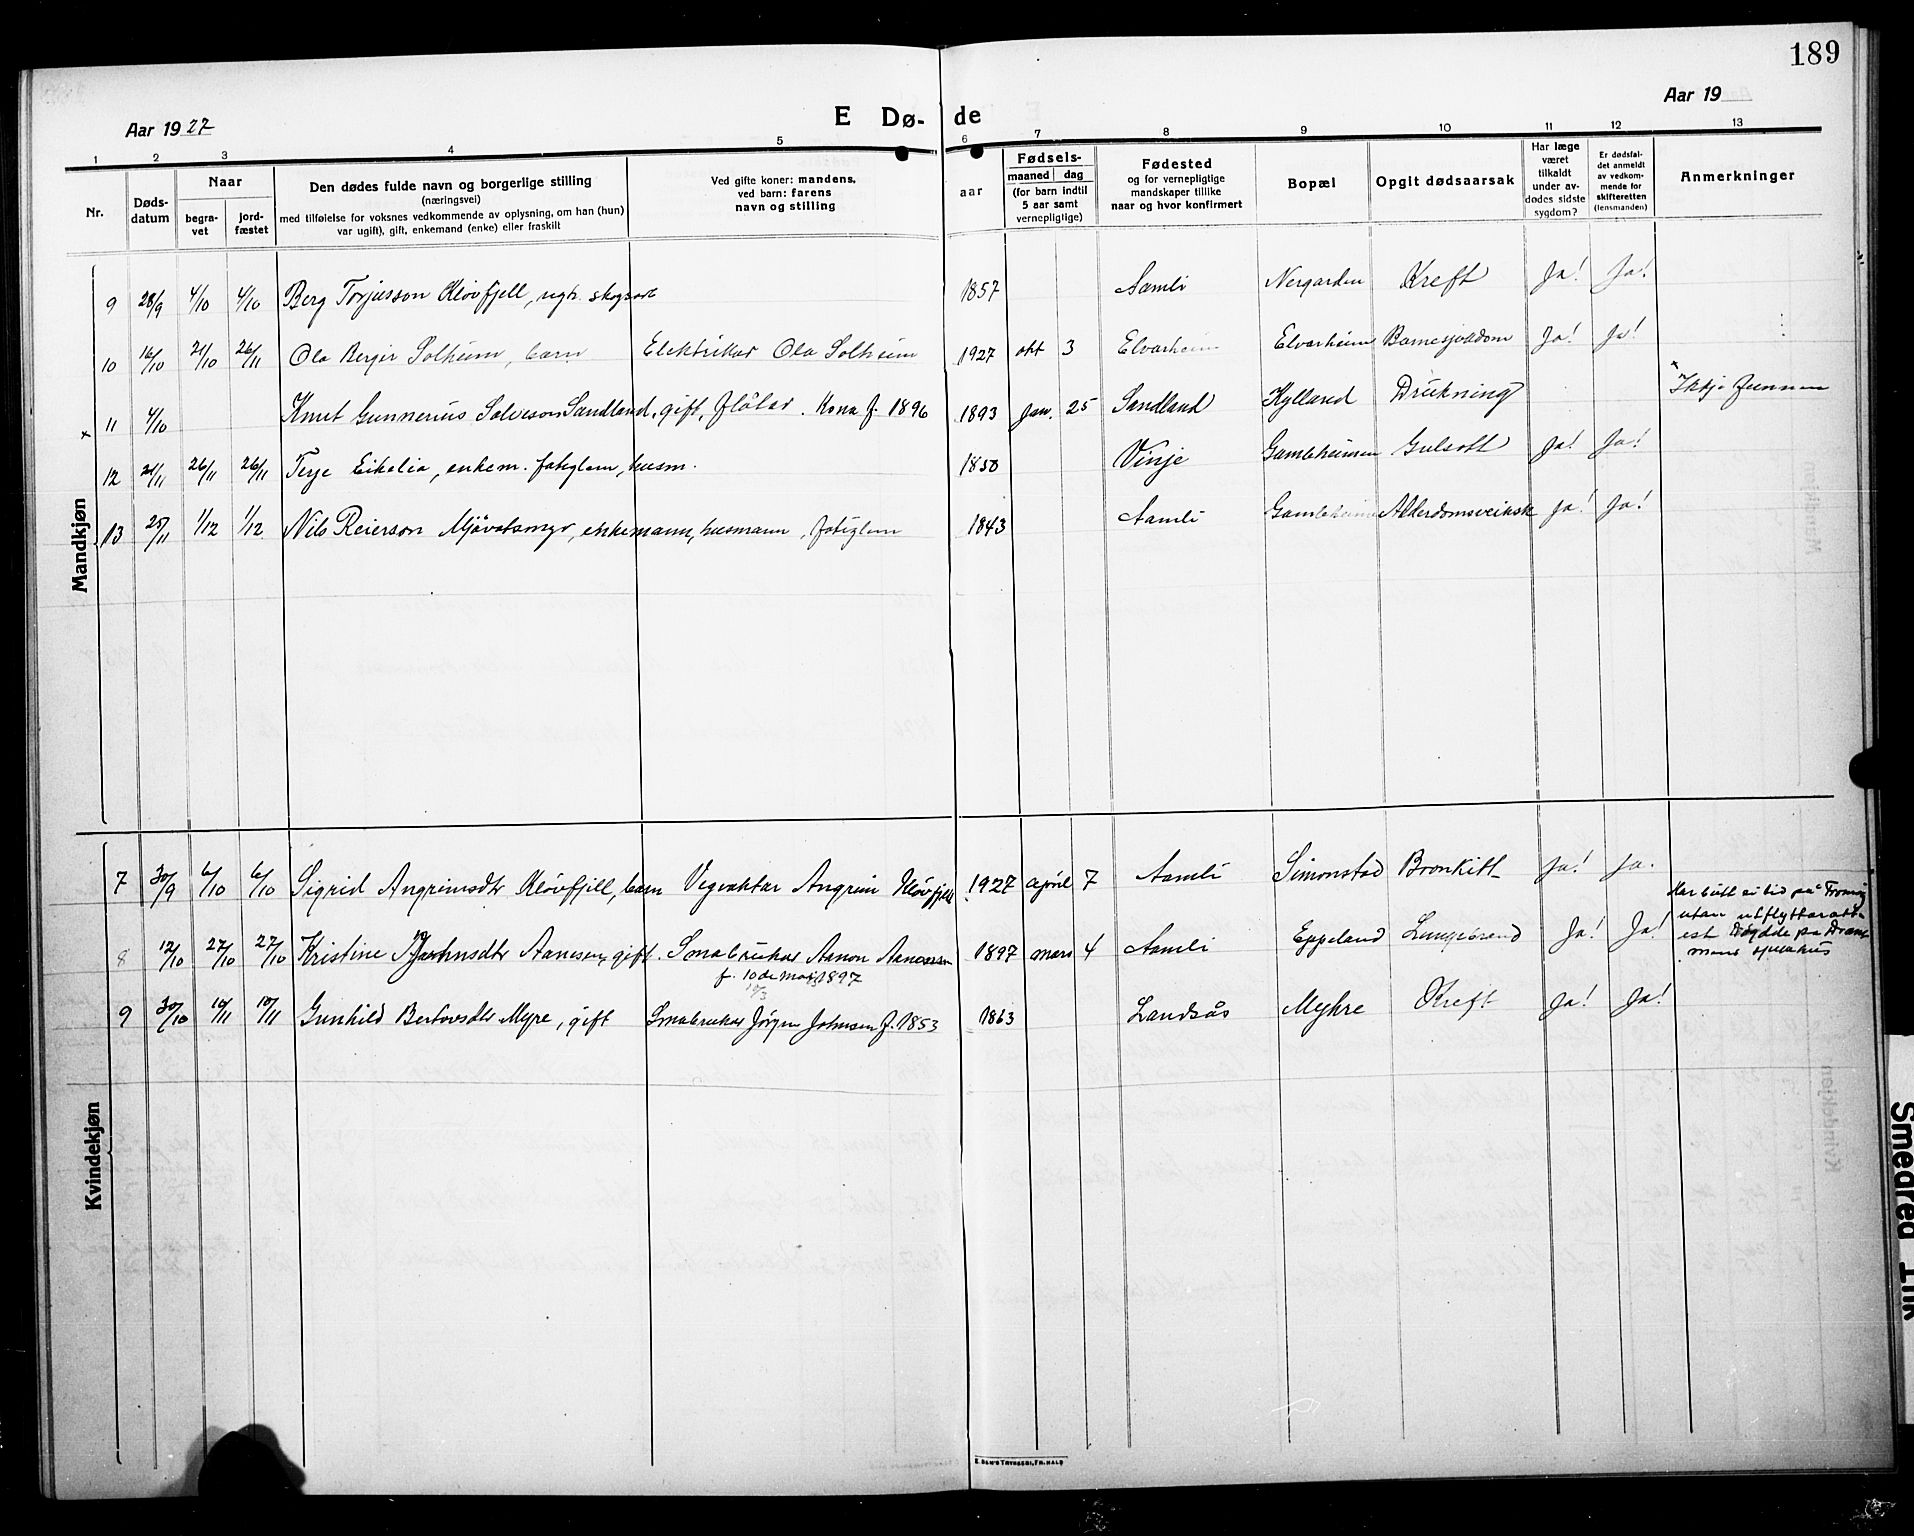 189
Aar 1927
E Dø- de
Aar 19
1 2 3 4 5 6 7 8 9 10 11 12 13
Nr.
Døds-datum
Naar
begra-vet
jord-fæstet
Den dødes fulde navn og borgerlige stilling
(næringsvei)
med tilføielse for voksnes vedkommende av oplysning, om han (hun)
var ugift), gift, enkemand (enke) eller fraskilt
Ved gifte koner: mandens,
ved barn: farens
navn og stilling
aar
Fødsels-
maaned dag
(for barn indtil
5 aar samt
vernepligtige)
Fødested
og for vernepligtige
mandskaper tillike
naar og hvor konfirmert
Bopæl
Opgit dødsaarsak
Har læge
været
tilkaldt
under av-
dødes sidste
sygdom?
Er dødsfal-
det anmeldt
av vedkom-
mende for
skifteretten
(lensmanden)
Anmerkninger
Mandkjøn
9 28/9 4/10 4/10 Berg Torjusson Kløvfjell, ugh. 1857 Aamli Nergarden Kreft Ja! Ja!
10 16/10 21/10 26/11 Ola Berger Solheim, barn Elektrikar Ola Solheim 1927 okt 3 Elvarheim Elvarheim Barnesjukdom Ja! Ja!
x 11 4/10 Knut Gunnerius Salveson Sandland, gift, fløtar. Kona f. 1896 1893 Jan. 25 Sandland Hylland Drukning x Ikkje funnen
12 21/11 26/11 26/11 Terje Eikelia, enkem. fatiglem, husm. 1850 Vinje Gamleheimen Gulsott Ja! Ja!
13 25/11 1/12 1/12 Nils Reierson Mjåvatsmyr, enkemann, husmann, fatiglem 1843 Aamli Gamleheimen Alderdomsveiksk Ja! Ja!
Kvindekjøn
7 30/9 6/10 6/10 Sigrid Angrimsdtr Kløvfjell, barn Vegvaktar Angrim Kløvfjell 1927 april 7 Aamli Simonstad Bronkitt Ja! Ja.
8 12/10 27/10 27/10 Kristine Aanesen, gift. Småbrukar Aanon Aanesen 1897 mars 4 Aamli Eppeland Lungebrand Ja! Ja! Har butt ei tid på Tromøy
utan utflyttaratt-
est Døydde på
sjukehus
f. 10de mai 1897
10/3
9 30/10 10/11 10/11 Gunhild Bertovsdtr Myre, gift Småbrukar Jørgen Johnsen f. 1853 1863 Landsås Myhre Kreft Ja! Ja!
Smeared Ink